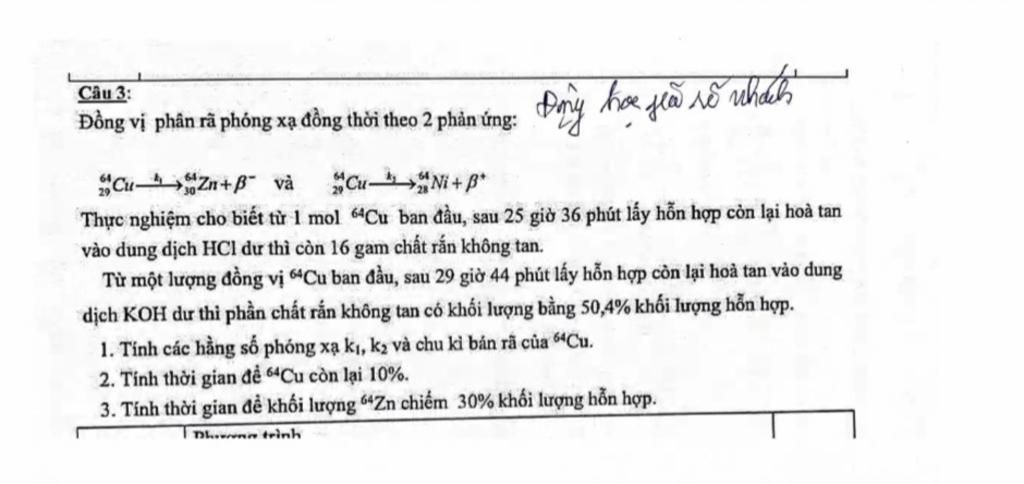 Câu 3:
Động học giã số nhánh
Đồng vị phân rã phóng xạ đồng thời theo 2 phản ứng:
⁶⁴₂₉Cu —k₁→ ⁶⁴₃₀Zn + β⁻ và ⁶⁴₂₉Cu —k₂→ ⁶⁴₂₈Ni + β⁺
Thực nghiệm cho biết từ 1 mol ⁶⁴Cu ban đầu, sau 25 giờ 36 phút lấy hỗn hợp còn lại hoà tan
vào dung dịch HCl dư thì còn 16 gam chất rắn không tan.
Từ một lượng đồng vị ⁶⁴Cu ban đầu, sau 29 giờ 44 phút lấy hỗn hợp còn lại hoà tan vào dung
dịch KOH dư thì phần chất rắn không tan có khối lượng bằng 50,4% khối lượng hỗn hợp.
1. Tính các hằng số phóng xạ k₁, k₂ và chu kì bán rã của ⁶⁴Cu.
2. Tính thời gian để ⁶⁴Cu còn lại 10%.
3. Tính thời gian để khối lượng ⁶⁴Zn chiếm 30% khối lượng hỗn hợp.
Phương trình